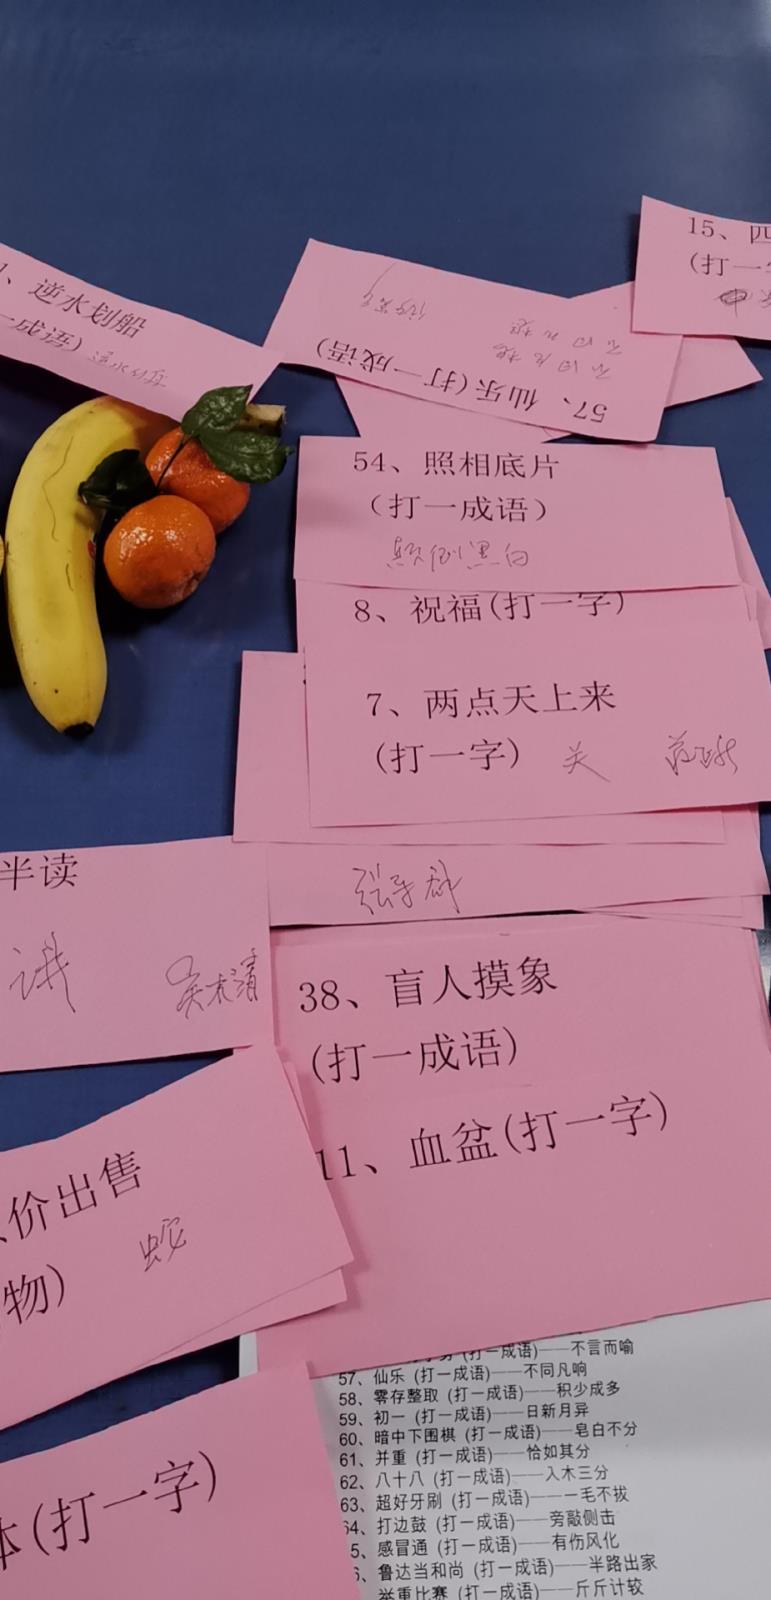 15、四
(打一字
、逆水划船
一成语)
57、仙乐(打一成语)
不同凡想
不同凡想
54、照相底片
(打一成语)
颠倒黑白
8、祝福(打一字)
7、两点天上来
(打一字) 关
半读
讲
38、盲人摸象
(打一成语)
11、血盆(打一字)
价出售
物)
蛇
体(打一字)
(打一成语)——不言而喻
57、仙乐 (打一成语)——不同凡响
58、零存整取 (打一成语)——积少成多
59、初一 (打一成语)——日新月异
60、暗中下围棋 (打一成语)——皂白不分
61、并重 (打一成语)——恰如其分
62、八十八 (打一成语)——入木三分
63、超好牙刷 (打一成语)——一毛不拔
64、打边鼓 (打一成语)——旁敲侧击
5、感冒通 (打一成语)——有伤风化
6、鲁达当和尚 (打一成语)——半路出家
举重比赛 (打一成语)——斤斤计较